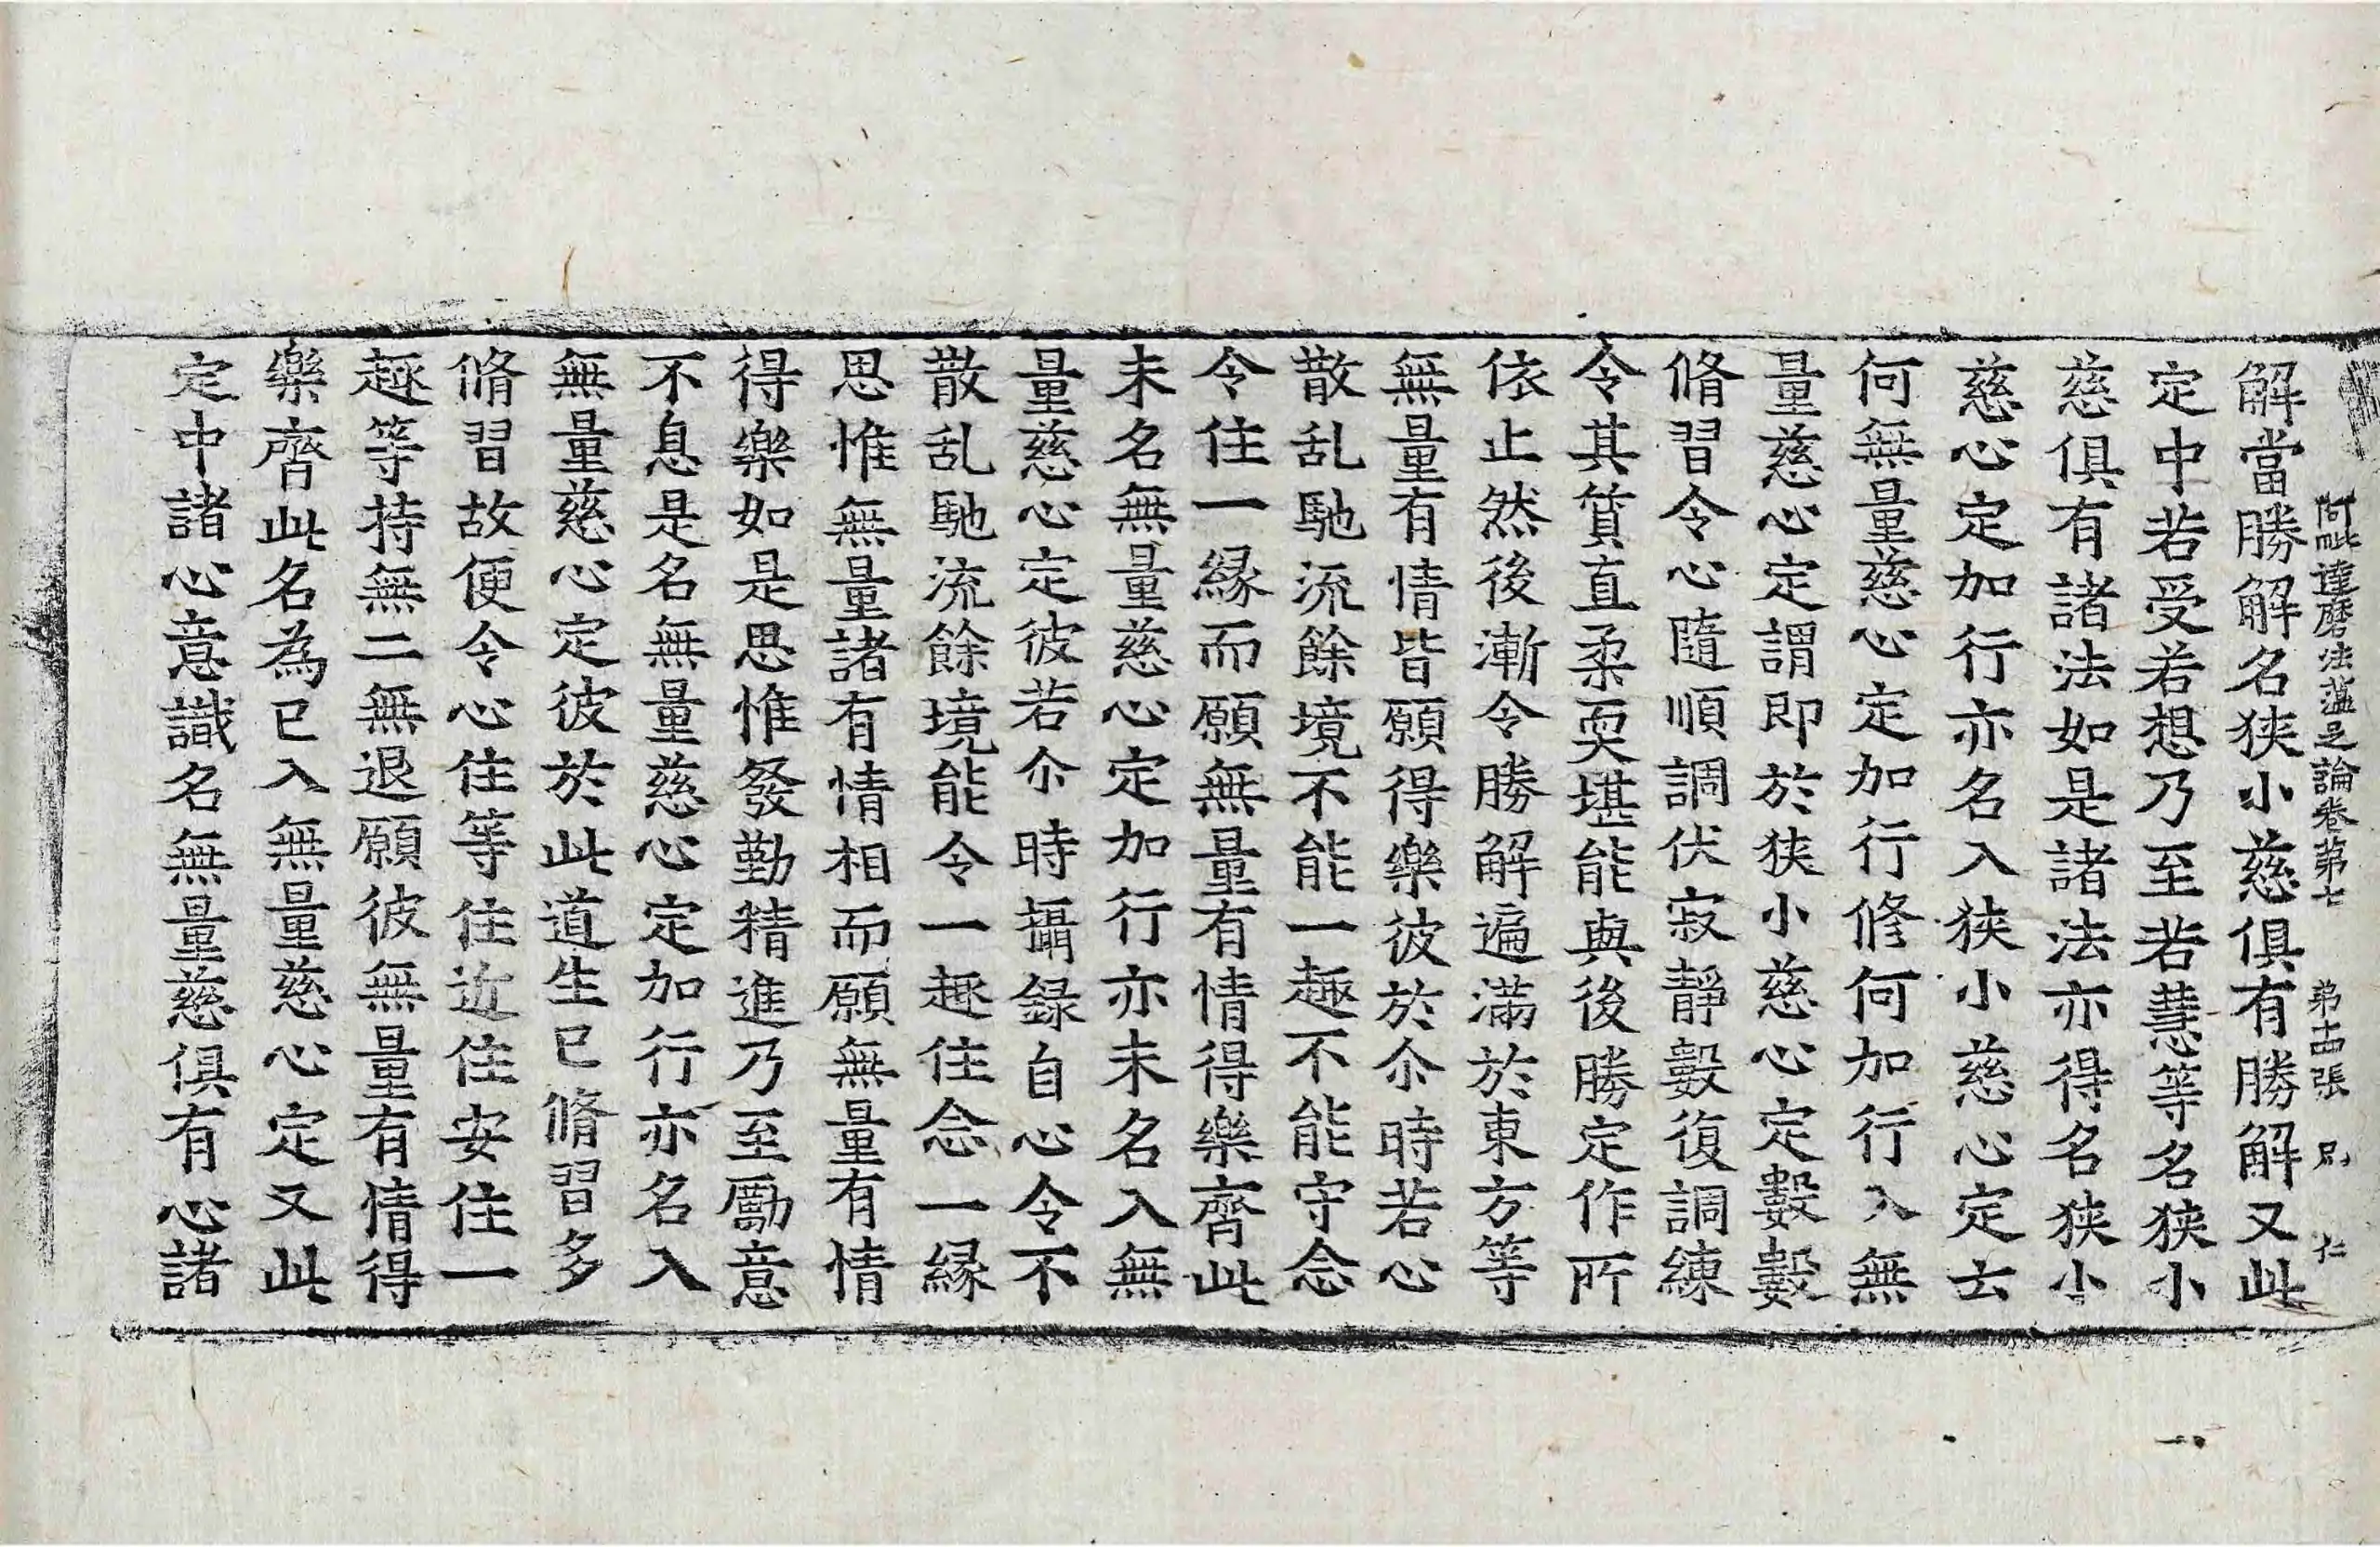 阿毗達磨法蘊足論卷第七 第十四張 別 仁
解當勝解解名狹小慈俱有勝解又此
定中若受若想乃至若慧等名狹小
慈俱有諸法如是諸法亦得名狹小
慈心定加行亦名入狹小慈心定云
何無量慈心定加行修何加行入無
量慈心定謂即於狹小慈心定數數
脩習令心隨順調伏寂靜數復調練
令其質直柔耎堪能與後勝定作所
依止然後漸令勝解遍滿於東方等
無量有情皆願得樂彼於尒時若心
散乱馳流餘境不能一趣不能守念
令住一緣而願無量有情得樂齊此
未名無量慈心定加行亦未名入無
量慈心定彼若尒時攝錄自心令不
散乱馳流餘境能令一趣住念一緣
思惟無量諸有情相而願無量有情
得樂如是思惟發勤精進乃至勵意
不息是名無量慈心定加行亦名入
無量慈心定彼於此道生已脩習多
脩習故便令心住等住近住安住一
趣等持無二無退願彼無量有情得
樂齊此名為已入無量慈心定又此
定中諸心意識名無量慈俱有心諸